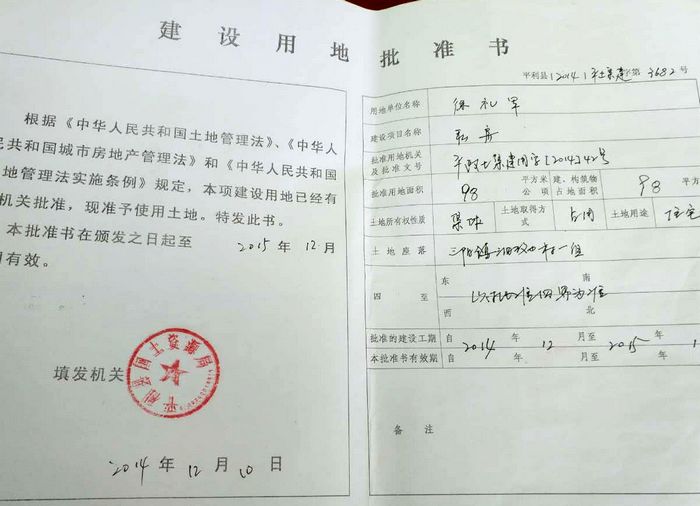 建设用地批准书
根据《中华人民共和国土地管理法》、《中华人
民共和国城市房地产管理法》和《中华人民共和国
地管理法实施条例》规定，本项建设用地已经有
机关批准，现准予使用土地。特发此书。
本批准书在颁发之日起至 2015 年 12 月
有效。
平利县国土资源局
填发机关
2014 年 12 月 10 日
平利县〔2014〕平土集建字第 3682 号
用地单位名称 徐礼军
建设项目名称
批准用地机关及批准文号 平政土集建用字[2014]42号
批准用地面积 98 平方米 公顷 建、构筑物占地面积 98 平方
土地所有权性质 集体 土地取得方式 占用 土地用途 住宅
土地座落 三阳镇 村一组
四至 东 南 西 北
以 四界为准
批准的建设工期 自 年 月至 年
本批准书有效期 自 2014 年 12 月至 2015 年 1
备注